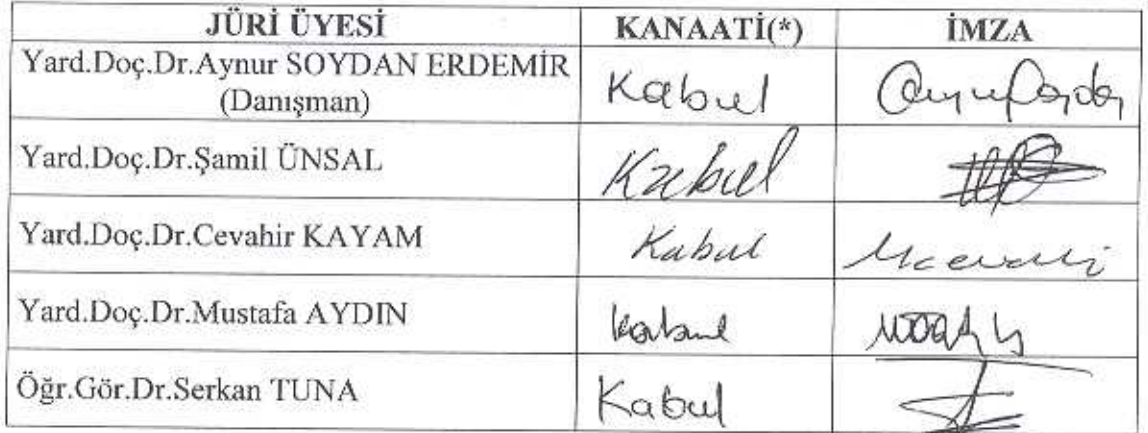 JÜRİ ÜYESİ KANAATİ(*) İMZA
Yard.Doç.Dr.Aynur SOYDAN ERDEMİR
(Danışman) Kabul
Yard.Doç.Dr.Şamil ÜNSAL Kabul
Yard.Doç.Dr.Cevahir KAYAM Kabul
Yard.Doç.Dr.Mustafa AYDIN Kabul
Öğr.Gör.Dr.Serkan TUNA Kabul